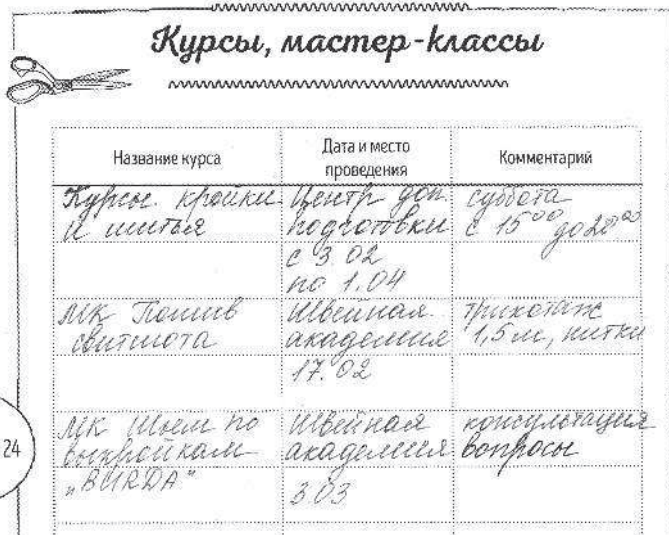 Курсы, мастер-классы
Название курса
Дата и место
проведения
Комментарий
Курсы кройки
и шитья
Центр доп.
подготовки
с 3.02
по 1.04
суббота
с 15⁰⁰ до 20⁰⁰
МК Пошив
свитшота
Швейная
академия
17.02
трикотаж
1,5 м, нитки
МК Шьем по
выкройкам
„BURDA"
Швейная
академия
3.03
консультация
вопросы
24